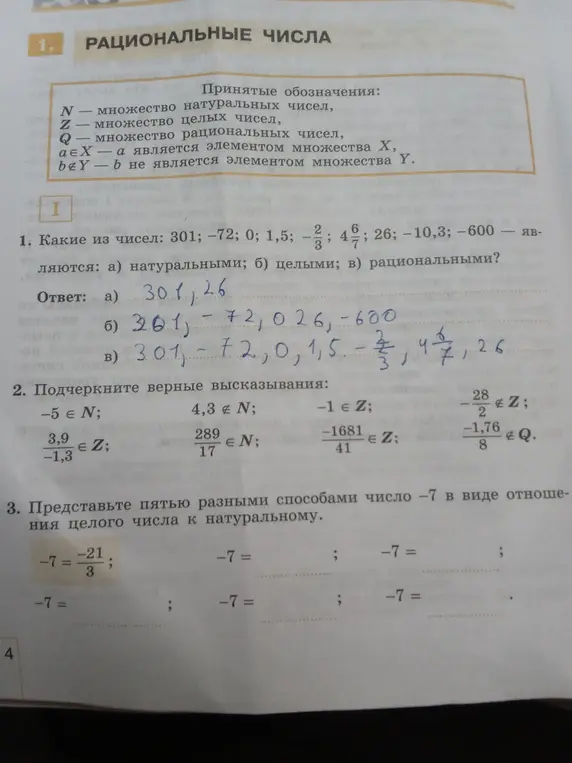 1. РАЦИОНАЛЬНЫЕ ЧИСЛА
Принятые обозначения:
N — множество натуральных чисел,
Z — множество целых чисел,
Q — множество рациональных чисел,
a∈X — a является элементом множества X,
b∉Y — b не является элементом множества Y.
I
1. Какие из чисел: 301; −72; 0; 1,5; −2/3; 4 6/7; 26; −10,3; −600 — яв-
ляются: а) натуральными; б) целыми; в) рациональными?
Ответ: а) 301, 26
б) 301, −72, 0 26, −600
в) 301, −72, 0, 1,5. −2/3, 4 6/7, 26
2. Подчеркните верные высказывания:
−5 ∈ N; 4,3 ∉ N; −1 ∈ Z; −28/2 ∉ Z;
3,9/−1,3 ∈ Z; 289/17 ∈ N; −1681/41 ∈ Z; −1,76/8 ∉ Q.
3. Представьте пятью разными способами число −7 в виде отноше-
ния целого числа к натуральному.
−7 = −21/3; −7 = ; −7 = ;
−7 = ; −7 = ; −7 = .
4